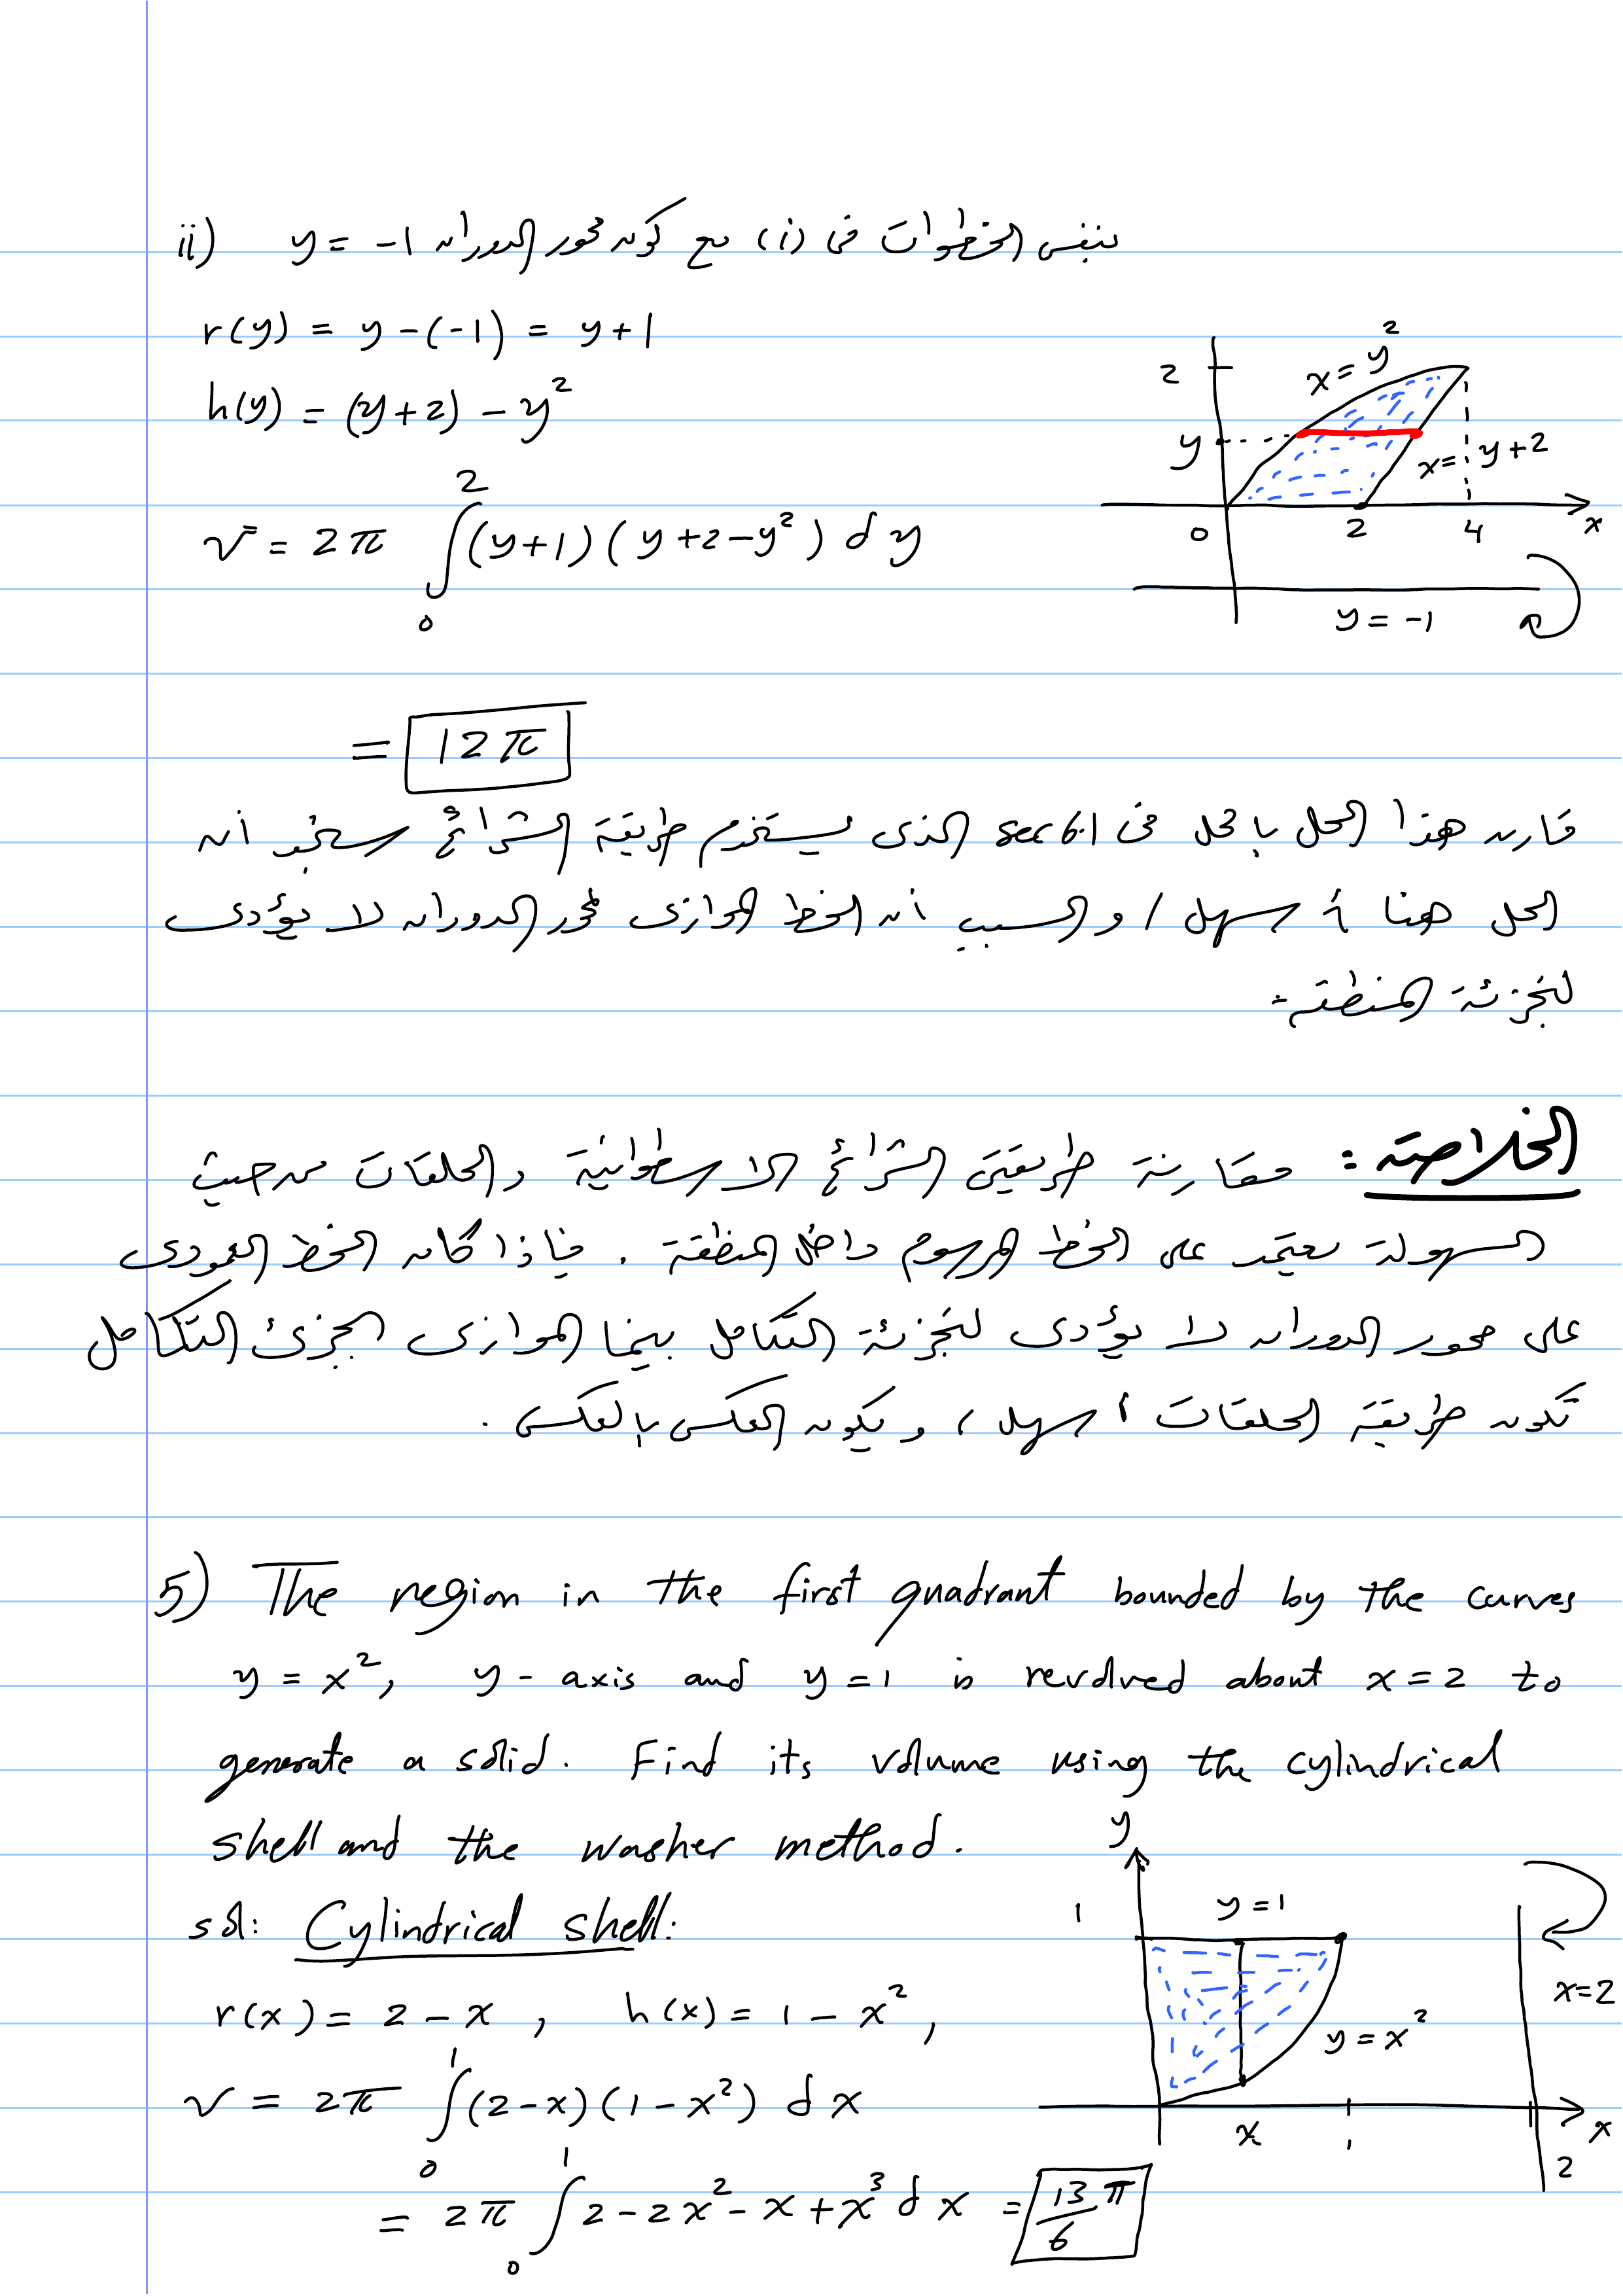 ii) بنفس الخطوات في (i) مع كون محور الدوران y = -1
r(y) = y - (-1) = y + 1
h(y) = (y+2) - y²
v = 2π ∫₀² (y+1)(y+2-y²) dy
2
x = y²
y
x = y+2
0 2 4 x
y = -1
= 12π
قارن هذا الحل بالحل في sec 6.1 الذى يستخدم طريقة الشرائح ستجد أن
الحل هنا أسهل، والسبب أن الخط الموازى لمحور الدوران لا يؤدى
لتجزئة المنطقة.
الخلاصة: مقارنة طريقتى الشرائح الاسطوانية والحلقات من حيث
السهولة يعتمد على الخط المرسوم داخل المنطقة. فإذا كان الخط العمودى
على محور الدوران لا يؤدى لتجزئة التكامل بينما الموازى يجزئ التكامل
تكون طريقة الحلقات أسهل، ويكون العكس بالعكس.
5) The region in the first quadrant bounded by the curves
y = x², y-axis and y = 1 is revolved about x = 2 to
generate a solid. Find its volume using the cylindrical
shell and the washer method.
sol: Cylindrical shell:
r(x) = 2 - x , h(x) = 1 - x²,
v = 2π ∫₀¹ (2-x)(1-x²) dx
= 2π ∫₀¹ 2 - 2x² - x + x³ dx = 13/6 π
y
1
y = 1
x = 2
y = x²
x 1 2 x